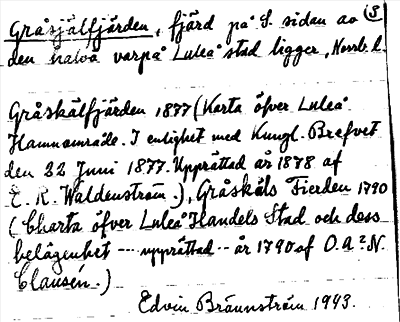 Gråsjälfjärden, fjärd på S. sidan av (3)
den halvö varpå Luleå stad ligger, Norrb. l.
Gråskälfjärden 1877 (Karta öfver Luleå
Hamnområde. I enlighet med Kungl. Brefvet
den 22 Juni 1877. Upprättad år 1878 af
E. R. Waldenström.), Gråskäls Fierden 1790
(Charta öfver Luleå Handels Stad och dess
belägenhet --- upprättad -- år 1790 af O. a? N.
Clausén.)
Edvin Brännström 1943.